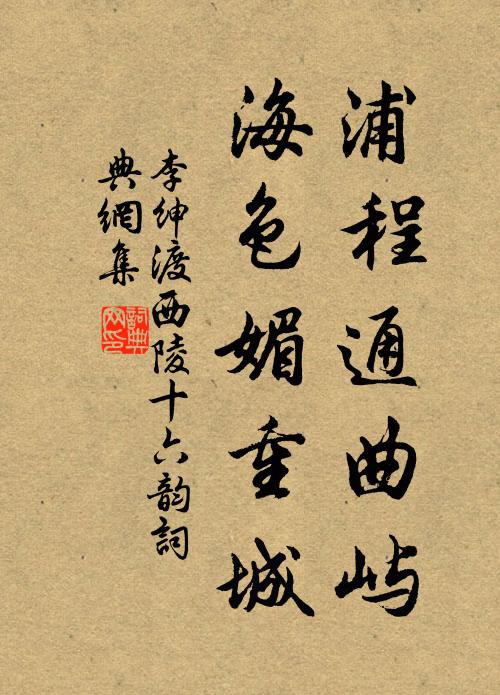 浦程通曲屿
海色媚重城
李绅渡西陵十六韵词
典網集
詞典
网印